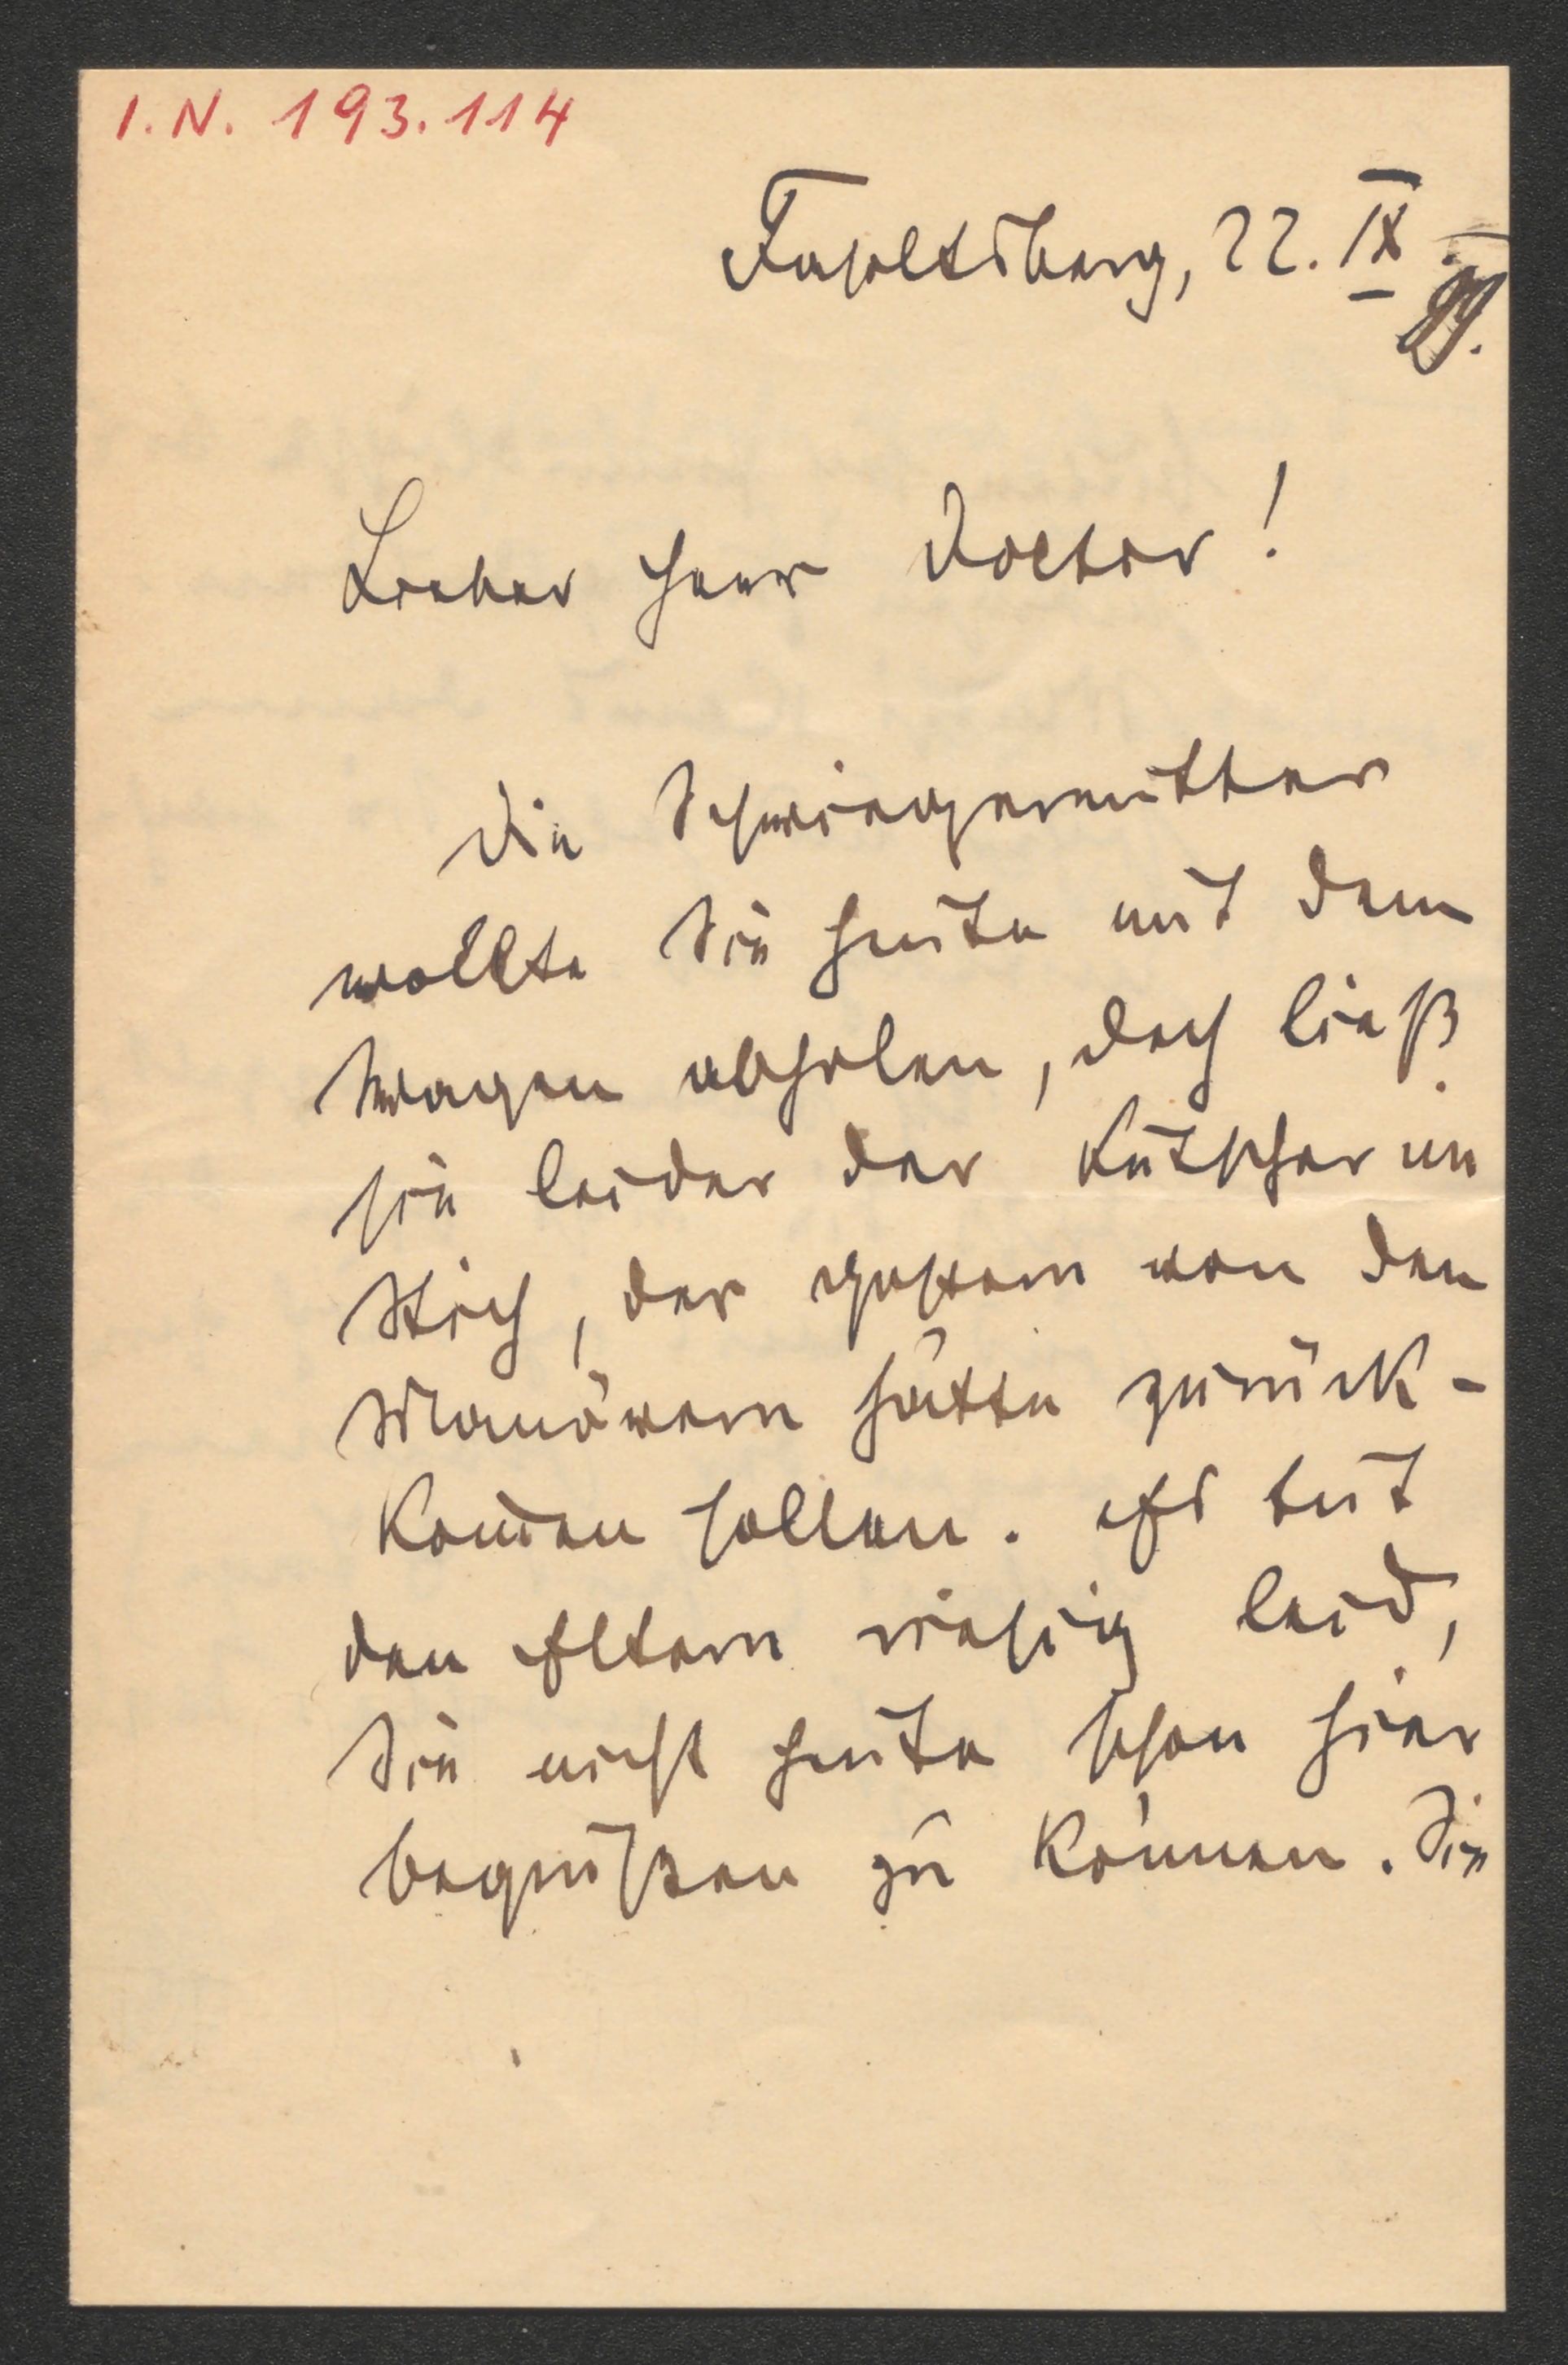 I. N. 193.114
Fasoltsberg, 22. IX.
99.
Lieber Herr Doctor!
Die Schwiegermutter
wollte Sie heute mit dem
Wagen abholen, doch ließ
sie leider der Kutscher im
Stich, der gestern von den
Manövern hätte zurück-
kom̅en sollen. Es tut
den Eltern riesig leid,
Sie nicht heute schon hier
begrüßen zu können. Sie